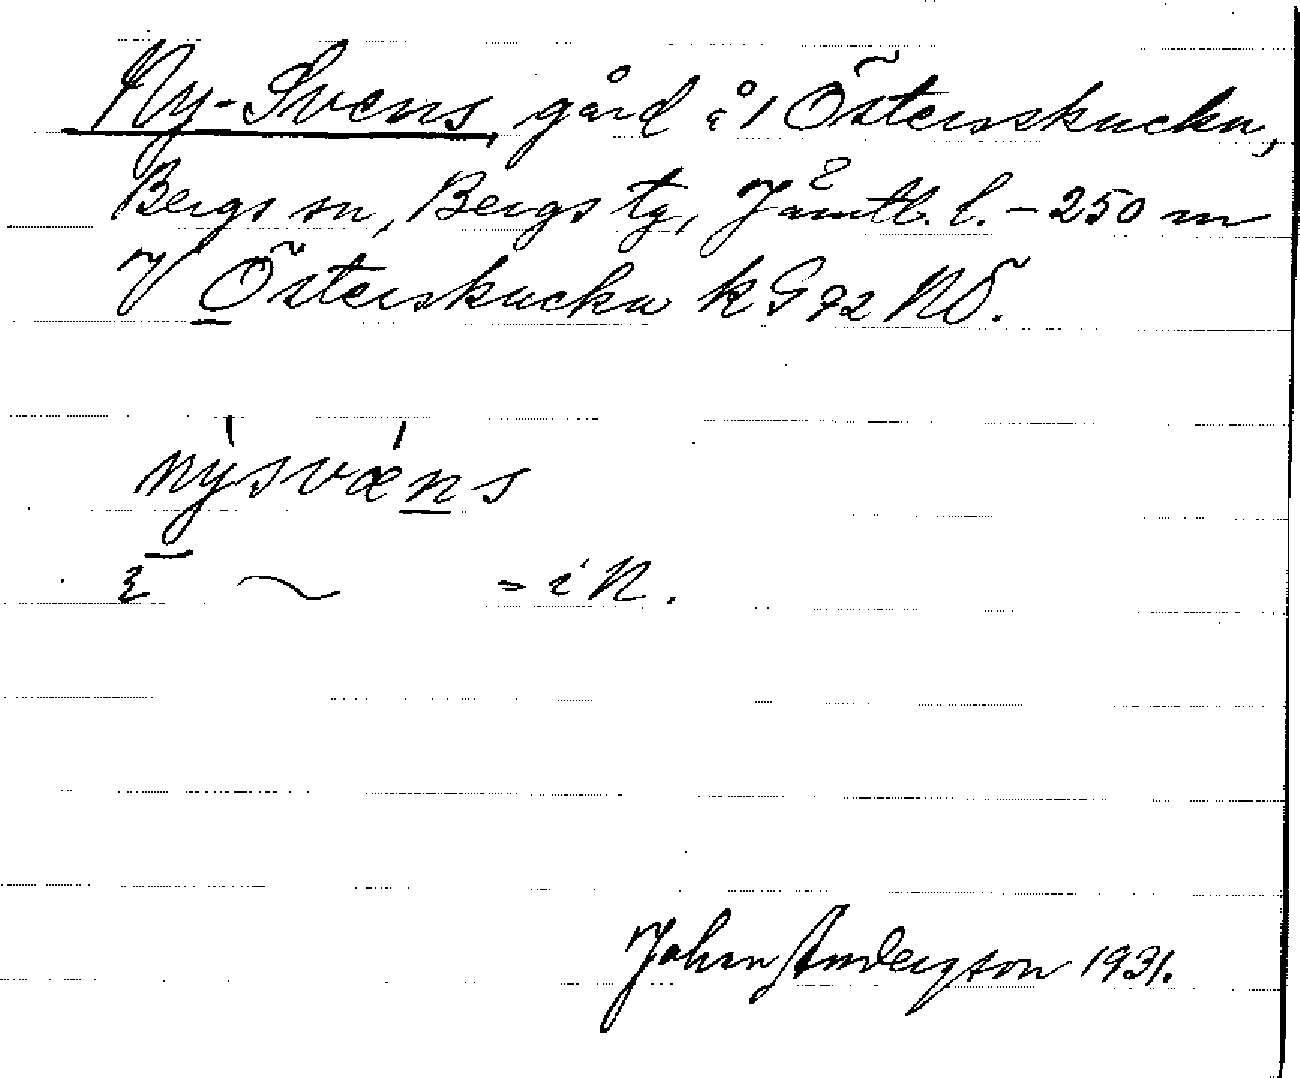 Ny-Svens, gård å 1 Österskucku,
Bergs sn, Bergs tg, Jämtl. l. - 250 m
V Österskucku k G 92 NÖ.
nýsvǽns
~ = i N.
Johan Anderson 1931.